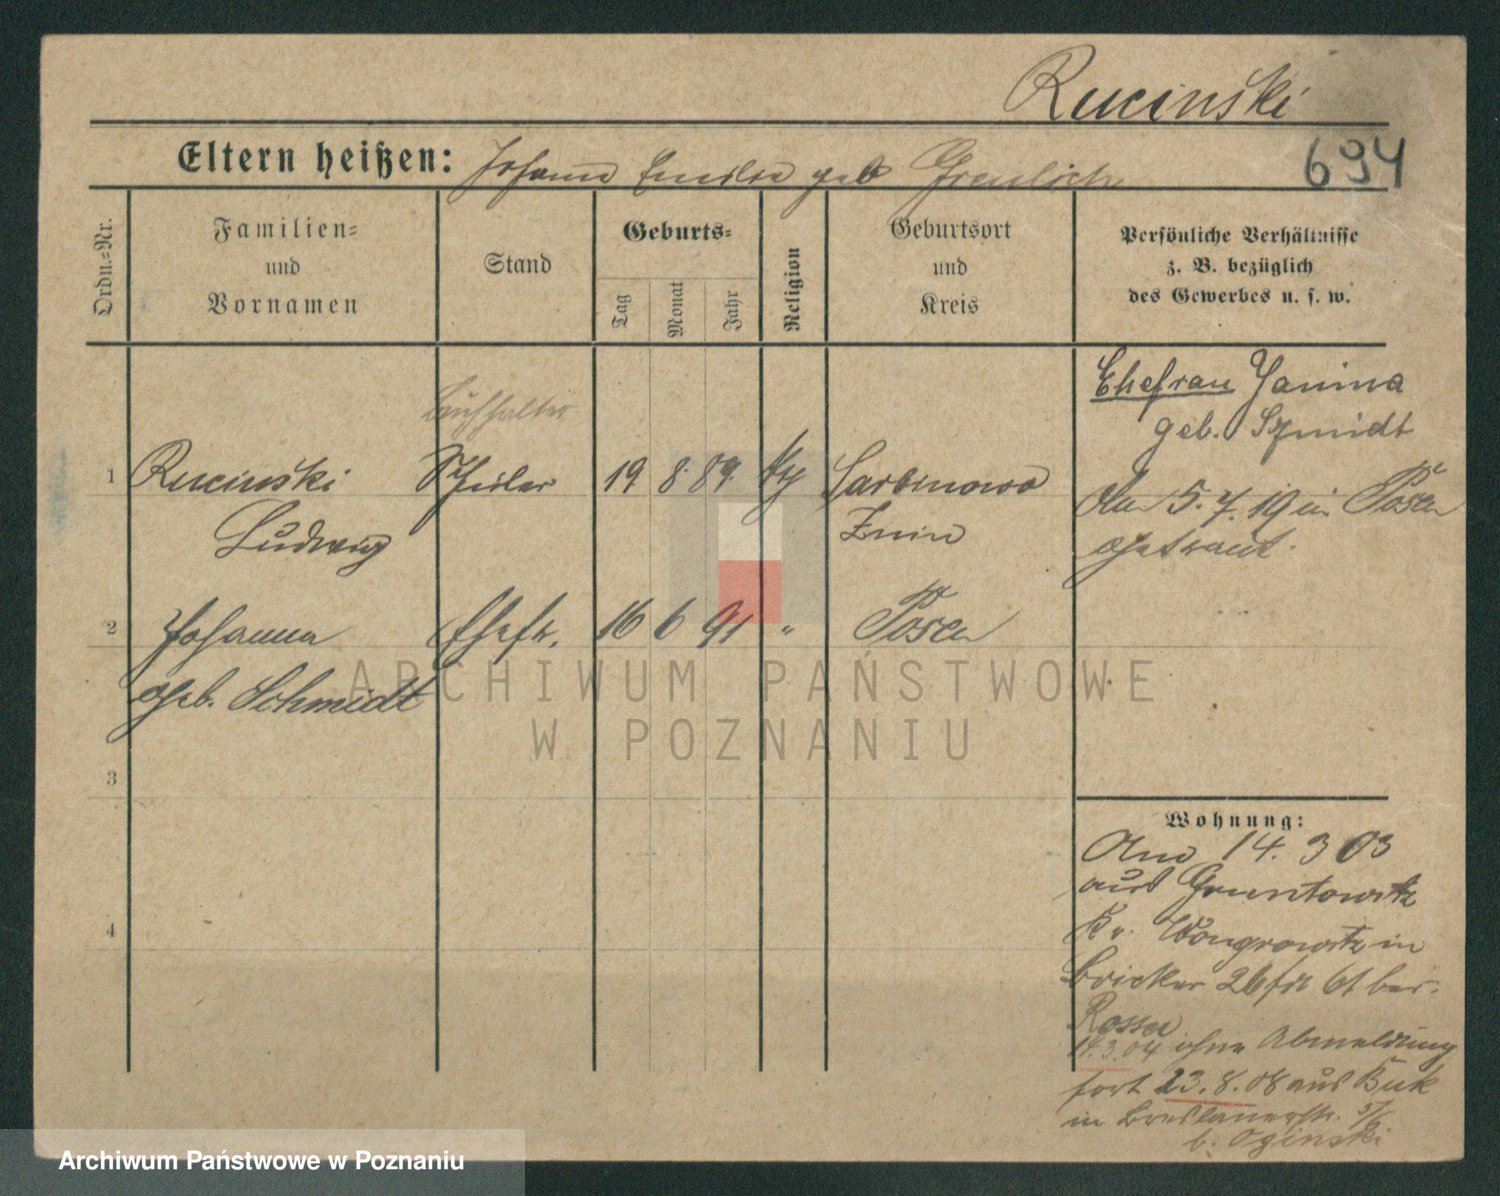 Rucinski
694
Eltern heißen: Johann Emilie geb
Ordn.-Nr.
Familien-
und
Vornamen
Stand
Geburts-
Tag
Monat
Jahr
Religion
Geburtsort
und
Kreis
Persönliche Verhältnisse
z. B. bezüglich
des Gewerbes u. s. w.
Ehefrau Janina
geb. Szmidt
Buchhalter
1 Rucinski Schüler 19 8. 89. Sarbinowo
Ludwig Znin
5. 7. 19 in Posen
getraut.
2 Johanna Ehefr. 16 6 91 " Posen
geb. Schmidt
3
4
Wohnung:
14. 3 03
aus
Kr. Wongrowitz in
26 bei
14.3.04 ohne Abmeldung
fort 23. 8. 08 aus Buk
in Breslauerstr.
b. Oginski
ARCHIWUM PAŃSTWOWE
W POZNANIU
Archiwum Państwowe w Poznaniu